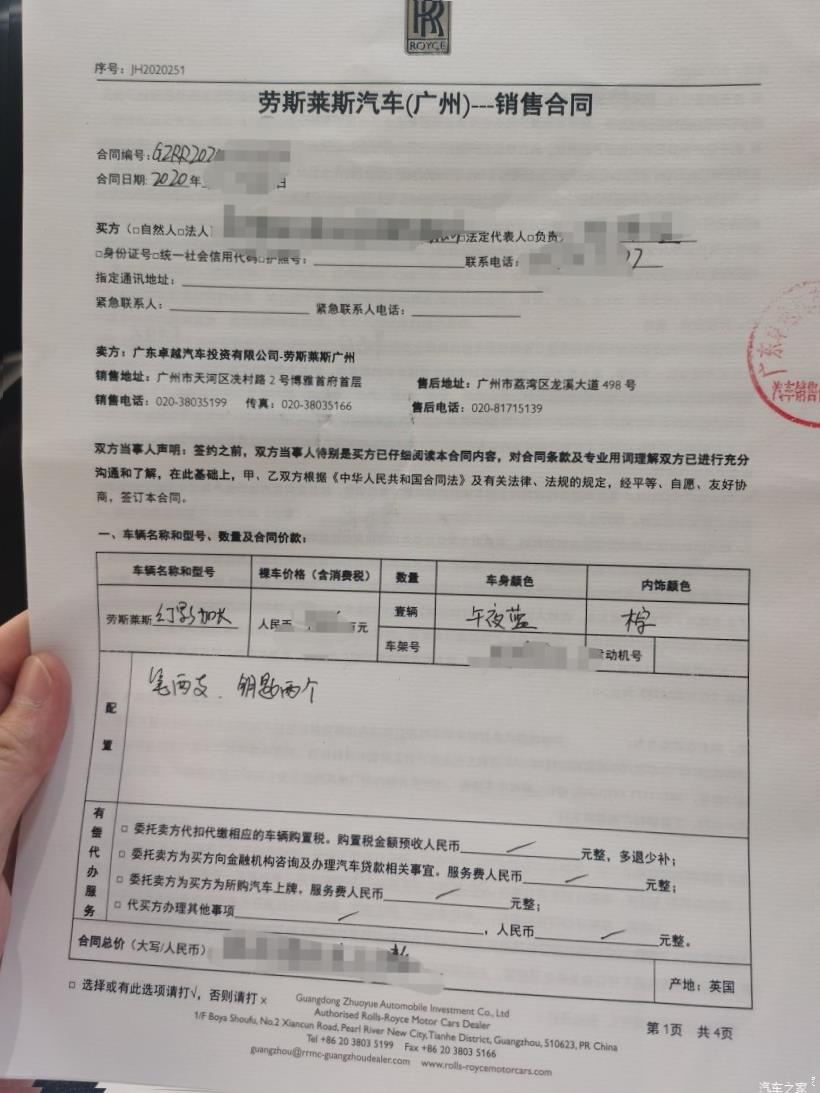 RR
ROYCE
序号：JH2020251
劳斯莱斯汽车(广州)---销售合同
合同编号:GZRR202
合同日期: 2020年 日
买方（□自然人□法人 □法定代表人□负责
□身份证号□统一社会信用代码□护照号： 联系电话：
指定通讯地址：
紧急联系人： 紧急联系人电话：
卖方：广东卓越汽车投资有限公司-劳斯莱斯广州
销售地址：广州市天河区冼村路 2 号博雅首府首层 售后地址：广州市荔湾区龙溪大道 498 号
销售电话：020-38035199 传真：020-38035166 售后电话：020-81715139
双方当事人声明：签约之前，双方当事人特别是买方已仔细阅读本合同内容，对合同条款及专业用词理解双方已进行充分
沟通和了解，在此基础上，甲、乙双方根据《中华人民共和国合同法》及有关法律、法规的规定，经平等、自愿、友好协
商，签订本合同。
一、车辆名称和型号、数量及合同价款：
车辆名称和型号 裸车价格（含消费税） 数量 车身颜色 内饰颜色
劳斯莱斯 幻影加长 人民币 万元 壹辆 午夜蓝 棕
车架号 发动机号
配置 笔两支、钥匙两个
有偿代办服务
□ 委托卖方代扣代缴相应的车辆购置税。购置税金额预收人民币 元整，多退少补；
□ 委托卖方为买方向金融机构咨询及办理汽车贷款相关事宜。服务费人民币 元整；
□ 委托卖方为买方为所购汽车上牌。服务费人民币 元整；
□ 代买方办理其他事项 ，人民币 元整。
合同总价（大写/人民币） 产地：英国
□ 选择或有此选项请打√，否则请打×
Guangdong Zhuoyue Automobile Investment Co., Ltd
Authorised Rolls-Royce Motor Cars Dealer
1/F Boya Shoufu, No.2 Xiancun Road, Pearl River New City, Tianhe District, Guangzhou, 510623, PR China
Tel +86 20 3803 5199 Fax +86 20 3803 5166
guangzhou@rrmc-guangzhoudealer.com www.rolls-roycemotorcars.com
第 1页 共 4页
广东
汽车销售
汽车之家